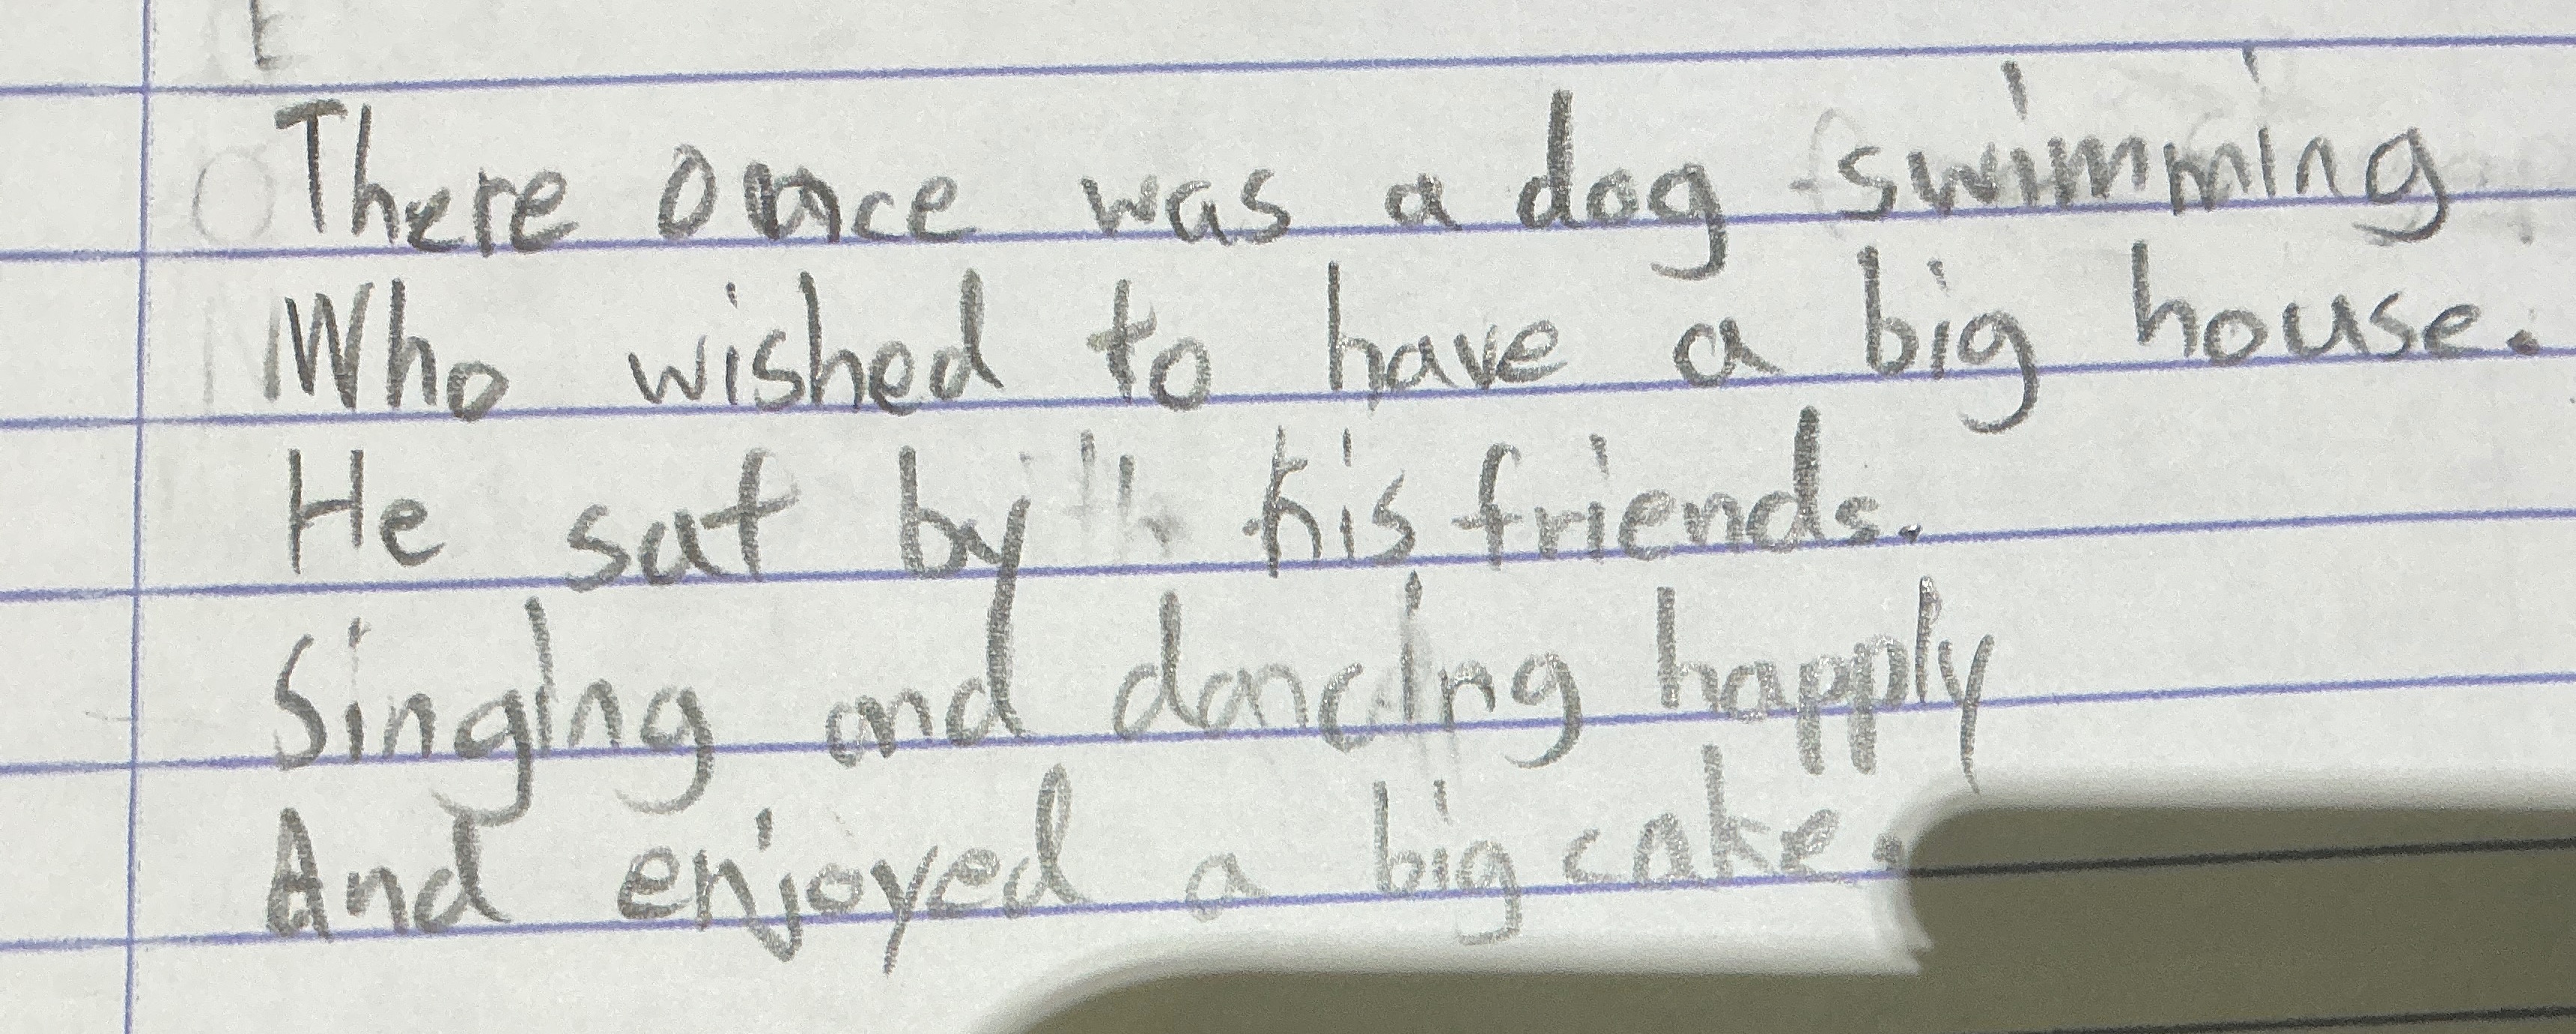 There once was a dog swimming
Who wished to have a big house.
He sat by his friends.
Singing and dancing happly
And enjoyed a big cake.